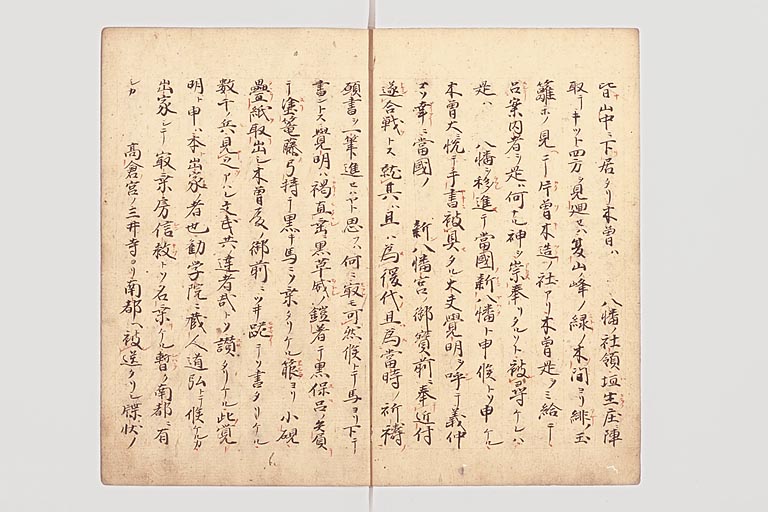 皆山中ニ下居タリ木曽ハ 八幡社領埴生庄陣
取テキット四方ヲ見廻セハ夏山ノ峰ノ緑ノ木間ヨリ緋ノ玉
籬ホノ見ニテ片曽木造ノ社アリ木曽是ヲミ給テ
呂案内者ヲ是ハ何ナル神ヲ崇奉リタルソト被尋ケレハ
是ハ 八幡ヲ移進テ當國新八幡ト申候トソ申ケル
木曽大悦テ手書ニ被具タル大夫覺明ヲ呼テ義仲
コソ幸ニ當國ノ 新八幡宮ノ御寶前ニ奉近付
遂合戦トス就其ハ且ハ為後代且ハ為當時ノ祈祷
願書ヲ一筆進セハヤト思フハ何ニ最モ可然候トテ馬ヨリ下テ
書ントス覺明ハ褐直垂ニ黒革威ノ鎧着テ黒保呂ノ矢負
テ塗篭藤ノ弓持テ黒キ馬ニソ乗タリケル箙ヨリ小硯
疊紙取出シ木曽殿ノ御前ニツイ跪テソ書タリケル
數千ノ兵見之アハレ文武共ニ達者哉トソ讃タリケル此覚
明ト申ハ本ハ出家ノ者也勧学院ニ蔵人道弘トテ候ケルカ
出家シテ最乗房信救トソ名乗ケル暫ク南都ニ有
シカ 高倉宮ノ三井寺ヨリ南都ヘ被送タリシ牒状ノ